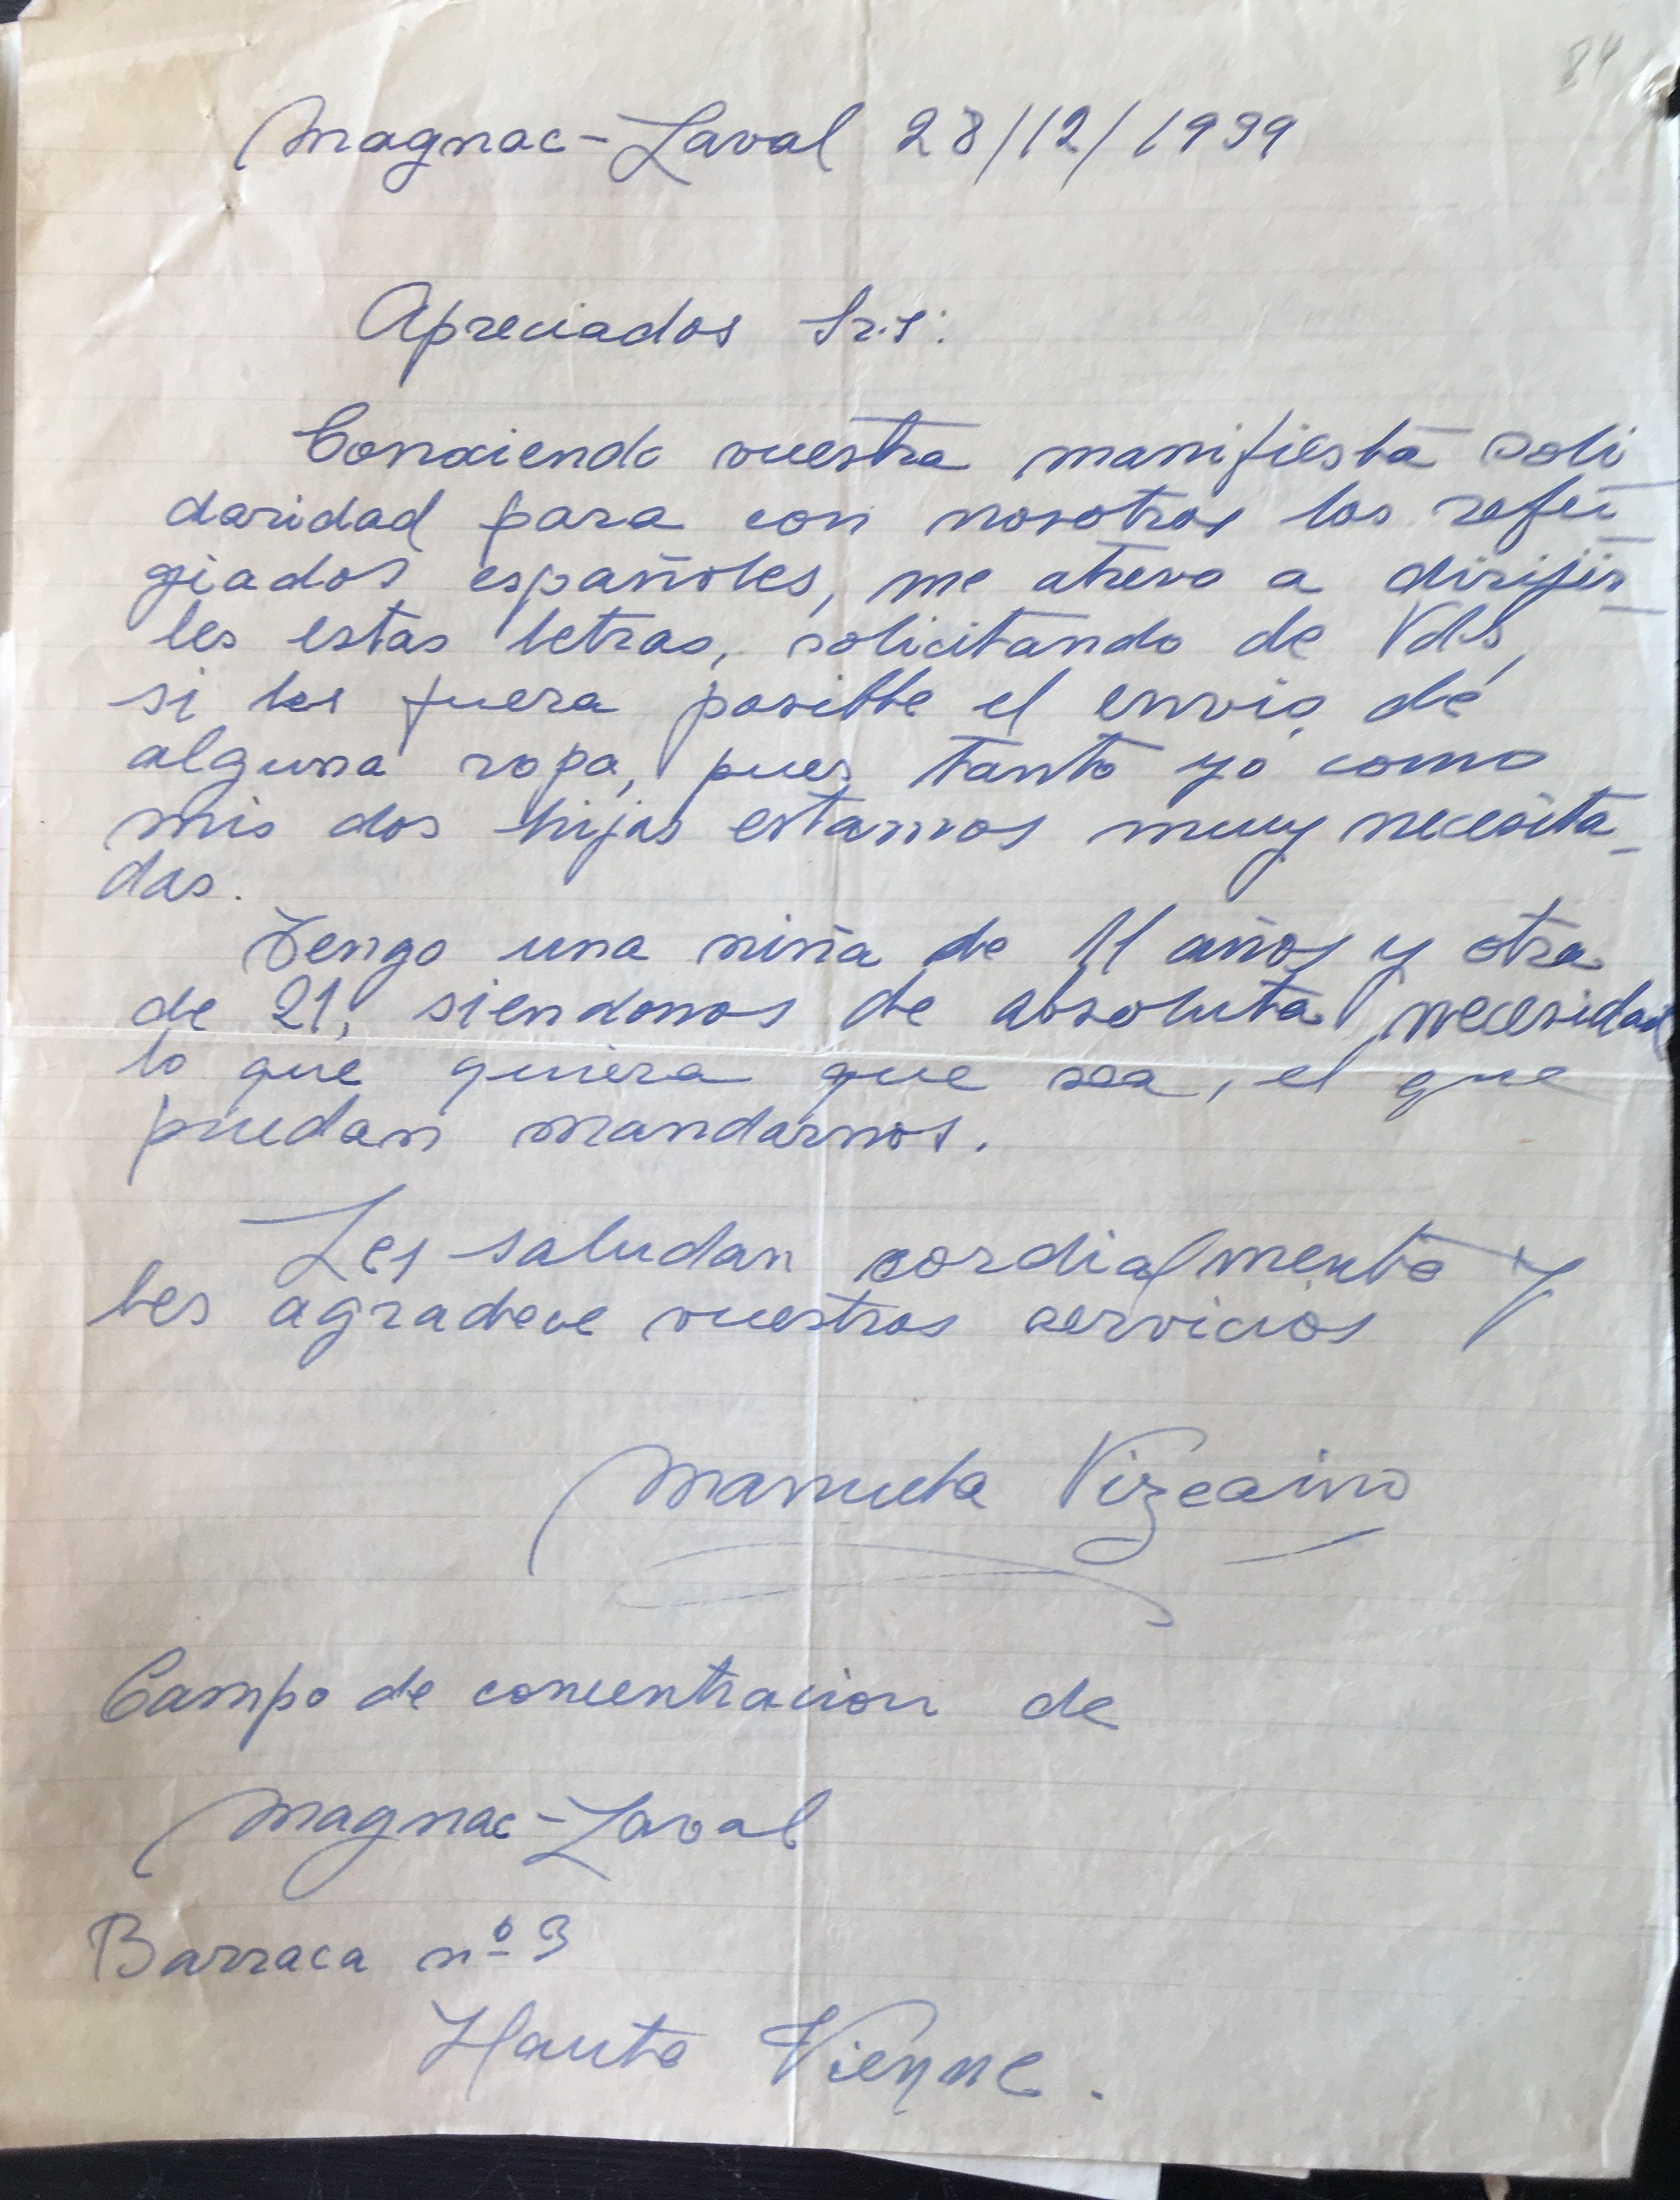 84
Magnac-Laval 28/12/1939
Apreciados Sr.s:
Conociendo vuestra manifiesta soli
daridad para con nosotros los refu-
giados españoles, me atrevo a dirijir-
les estas letras, solicitando de Vds,
si les fuera posible el envio de
alguna ropa, pues tanto yo como
mis dos hijas estamos muy necesita-
das.
Tengo una niña de 11 años y otra
de 21, siendonos de absoluta necesidad
lo que quiera que sea, el que
puedan mandarnos.
Les saludan cordialmente y
les agradece vuestros servicios
Manuela Vizcaino
Campo de concentracion de
Magnac-Laval
Barraca nº 3
Haute Vienne.